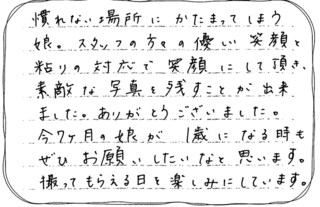 慣れない場所に かたまってしまう
娘。スタッフの方々の優しい笑顔と
粘りの対応で 笑顔にして頂き、
素敵な写真を残すことが出来
ました。ありがとうございました。
今7ヶ月の娘が 1歳になる時も
ぜひ お願いしたいなと思います。
撮ってもらえる日を楽しみにしています。